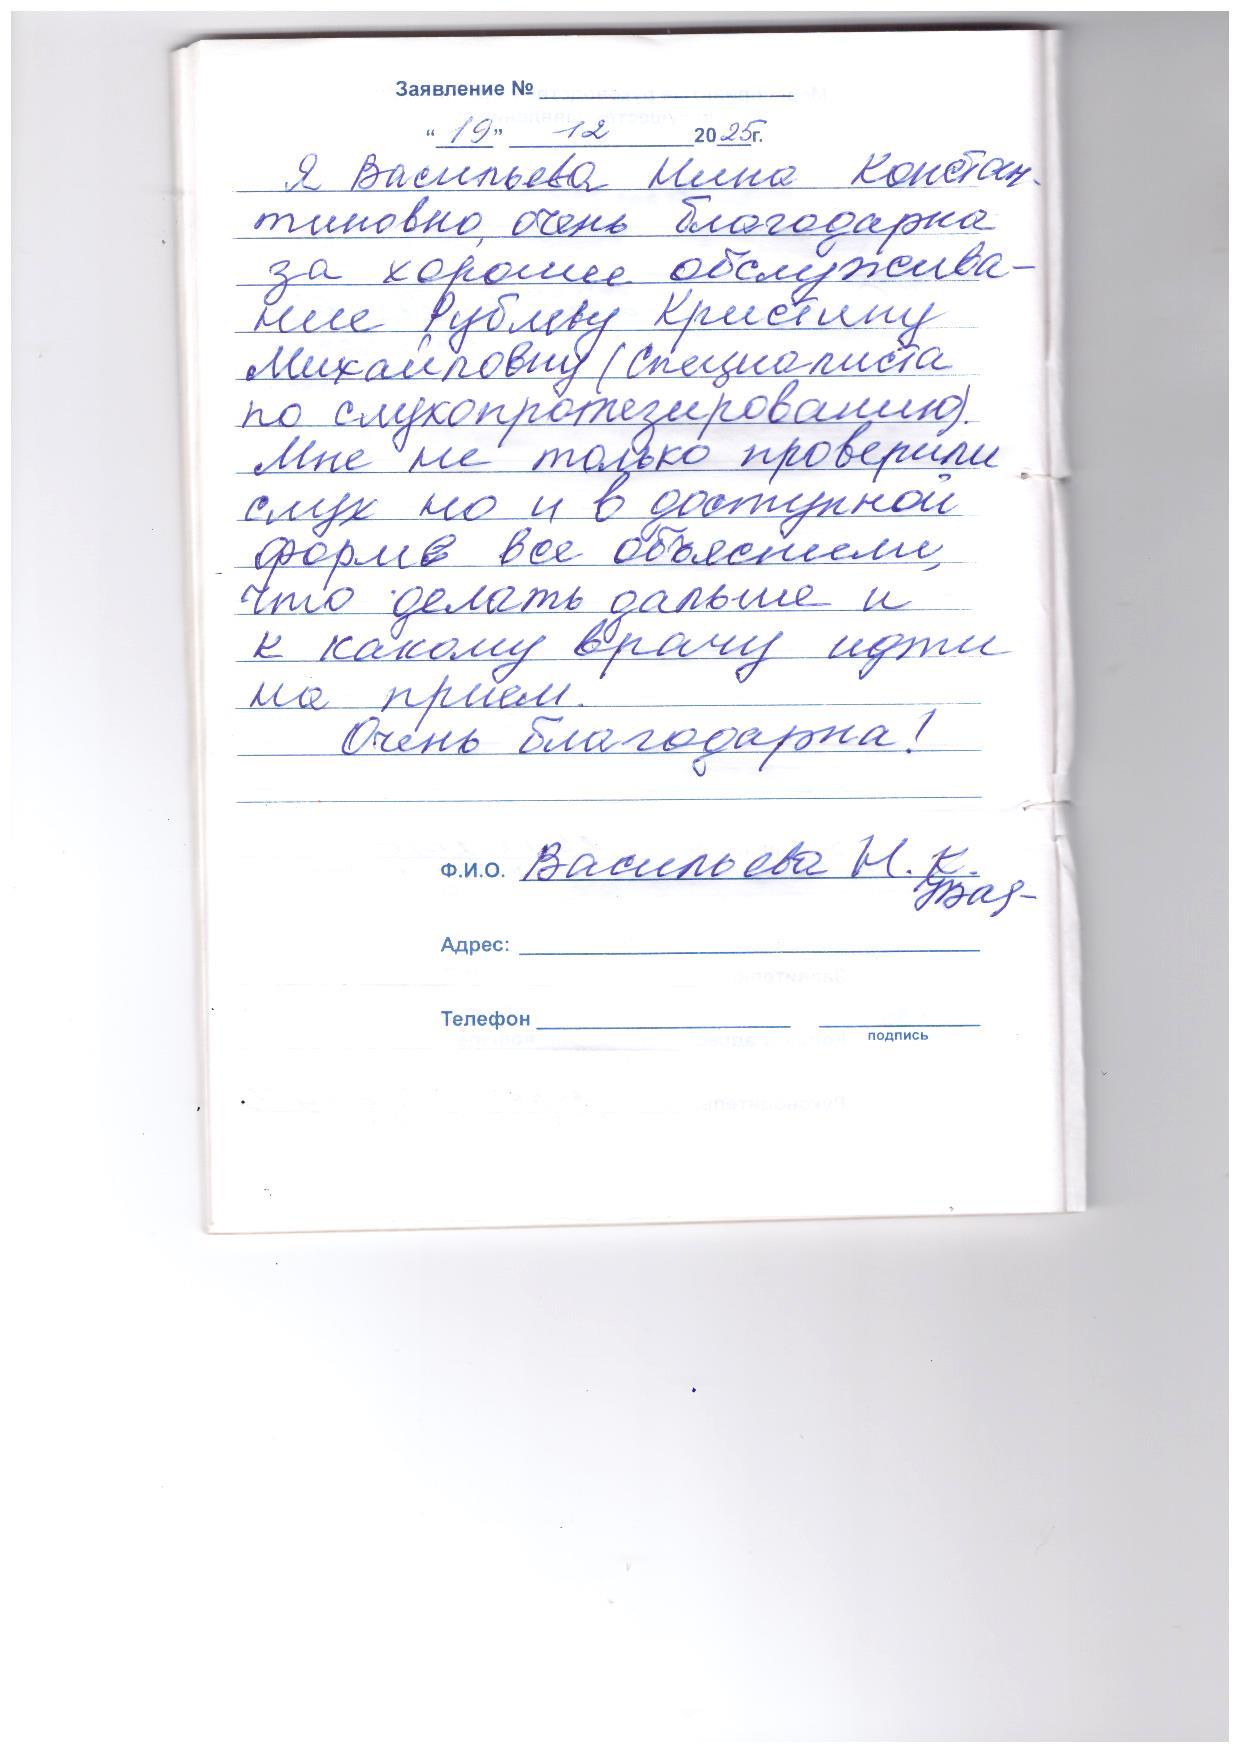 Заявление №
"19" 12 2025г.
Я Васильева Нина Констан-
тиновна, очень благодарна
за хорошее обслужива-
ние Рублеву Кристину
Михайловну (специалиста
по слухопротезированию).
Мне не только проверили
слух но и в доступной
форме все объяснили,
что делать дальше и
к какому врачу идти
на прием.
Очень благодарна!
Ф.И.О. Васильева Н.К.
Адрес:
Телефон
подпись